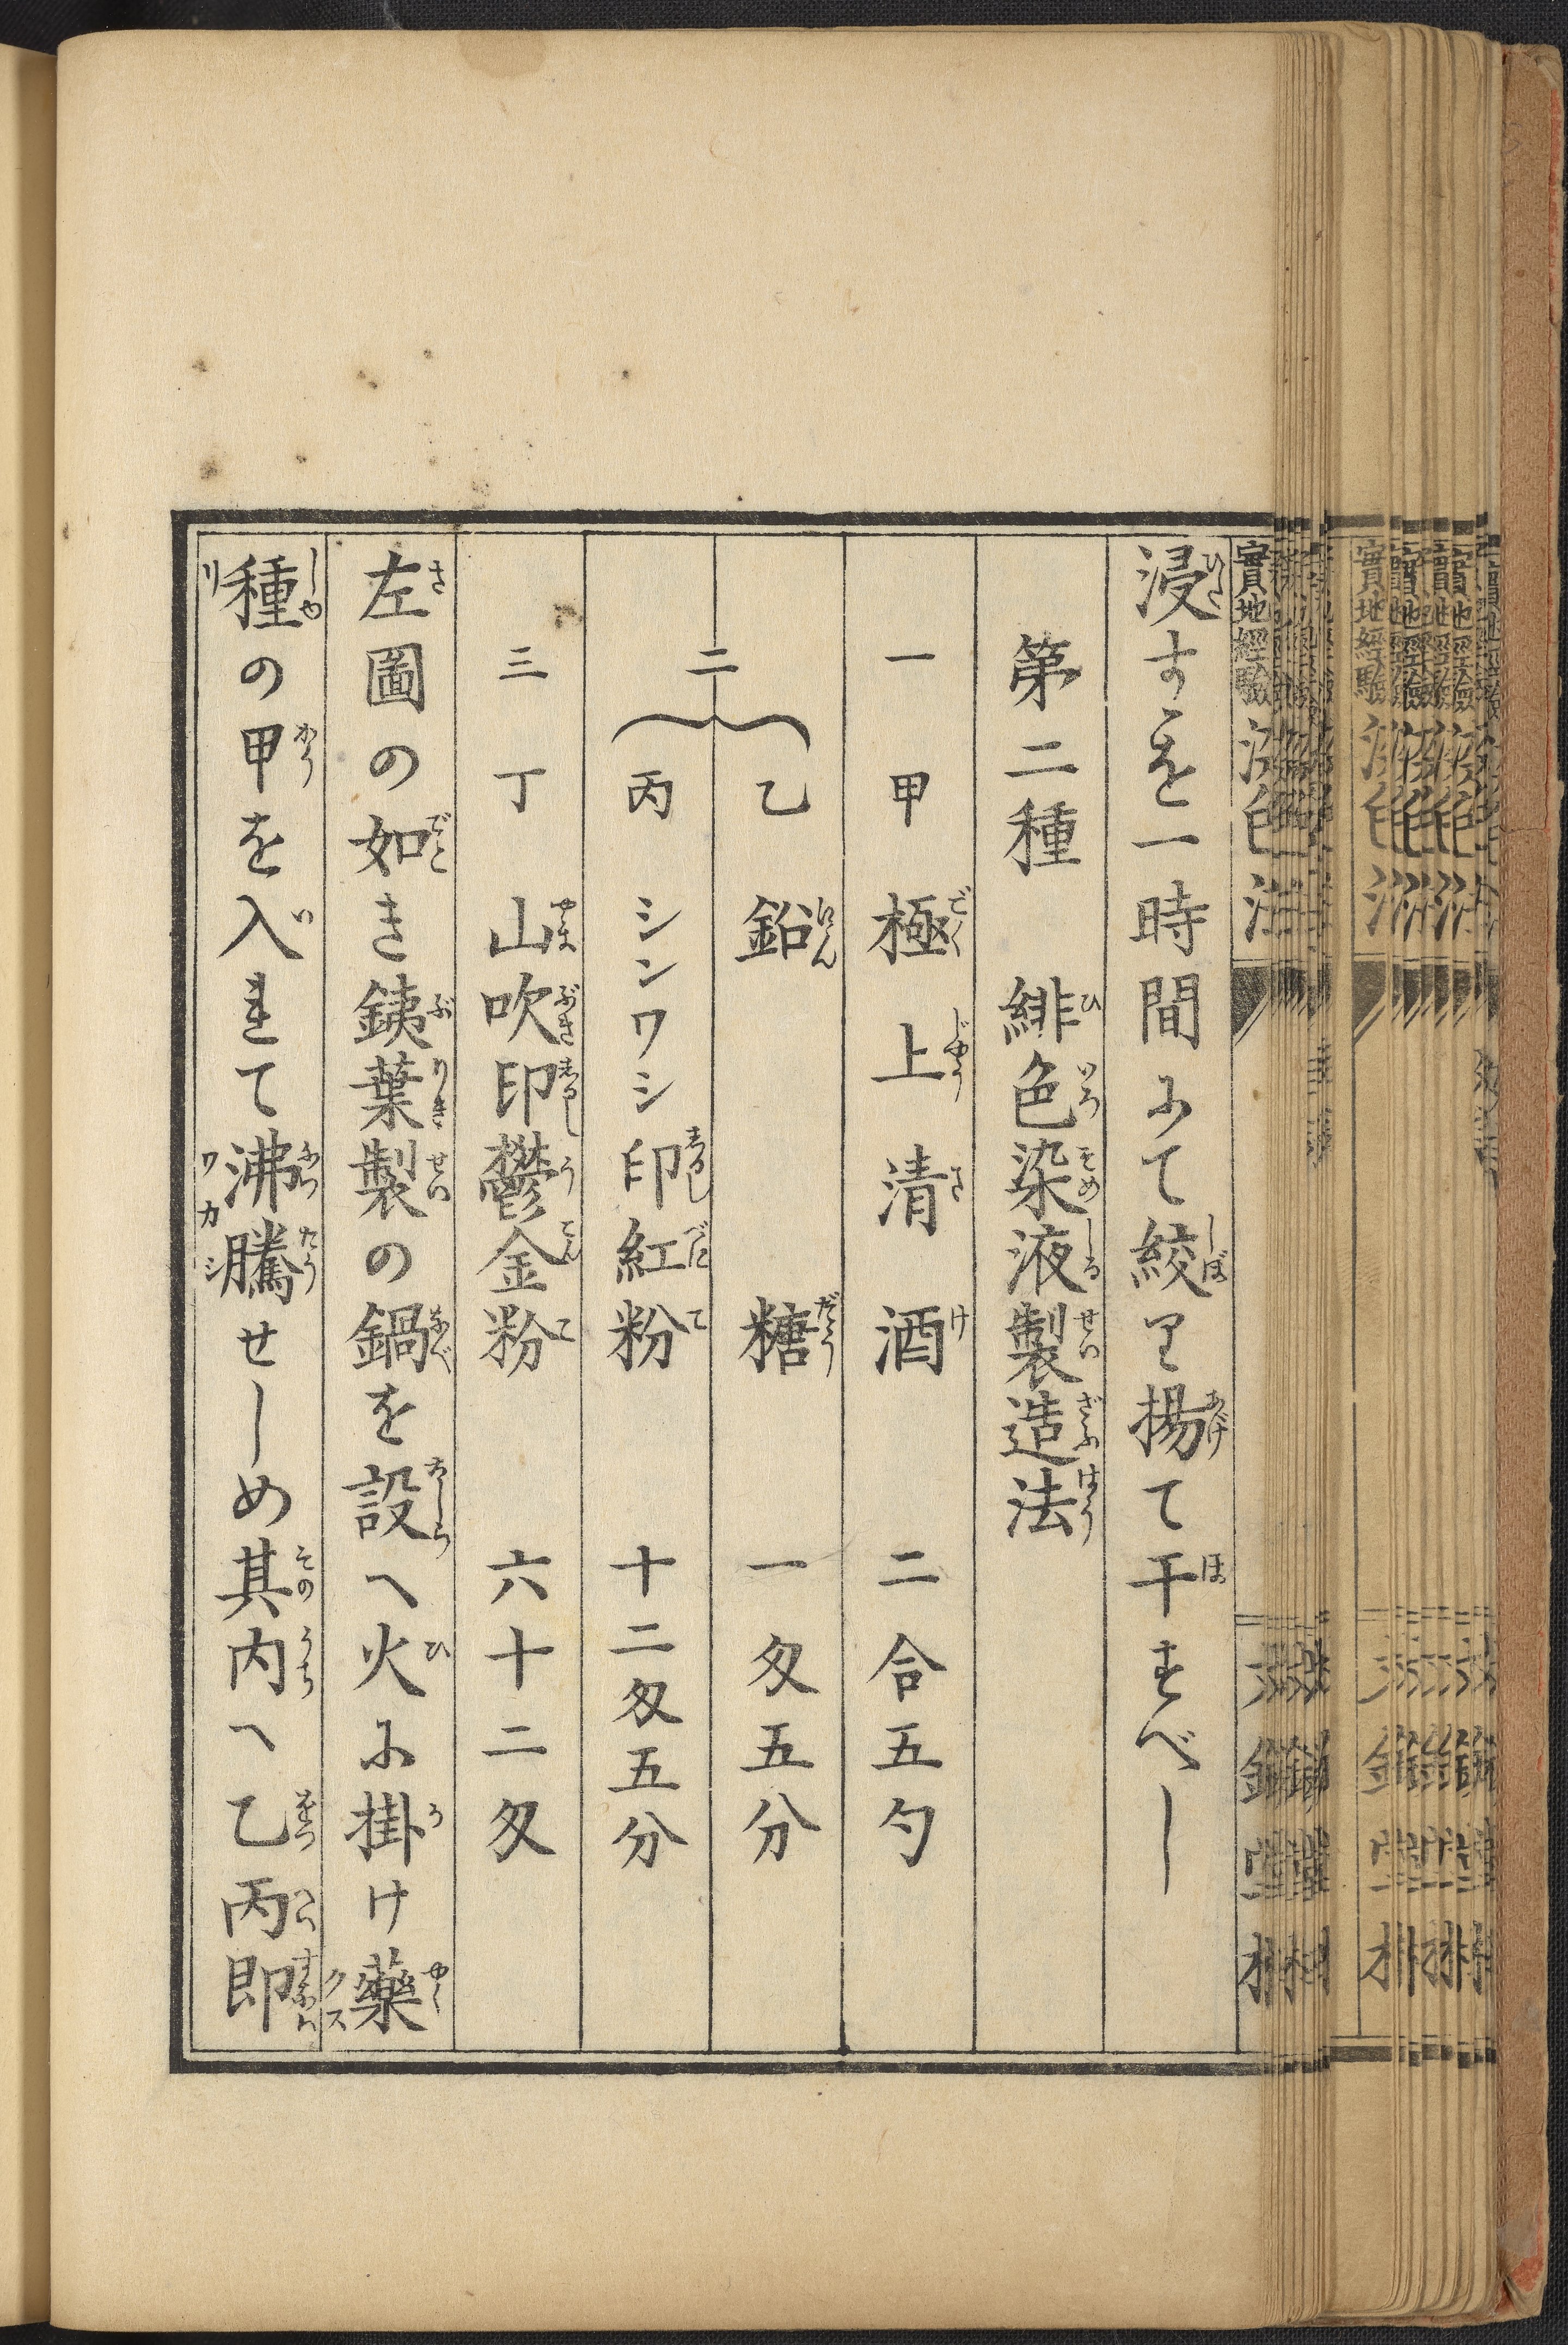 浸すこと一時間にて絞り揚て干すべし
第二種 緋色染液製造法
一 甲 極上清酒 二合五勺
二 乙 鉛糖 一匁五分
丙 シンワシ印紅粉 十二匁五分
三 丁 山吹印鬱金粉 六十二匁
左圖の如き銕葉製の鍋を設へ火に掛け藥
種の甲を入れて沸騰せしめ其内へ乙丙即